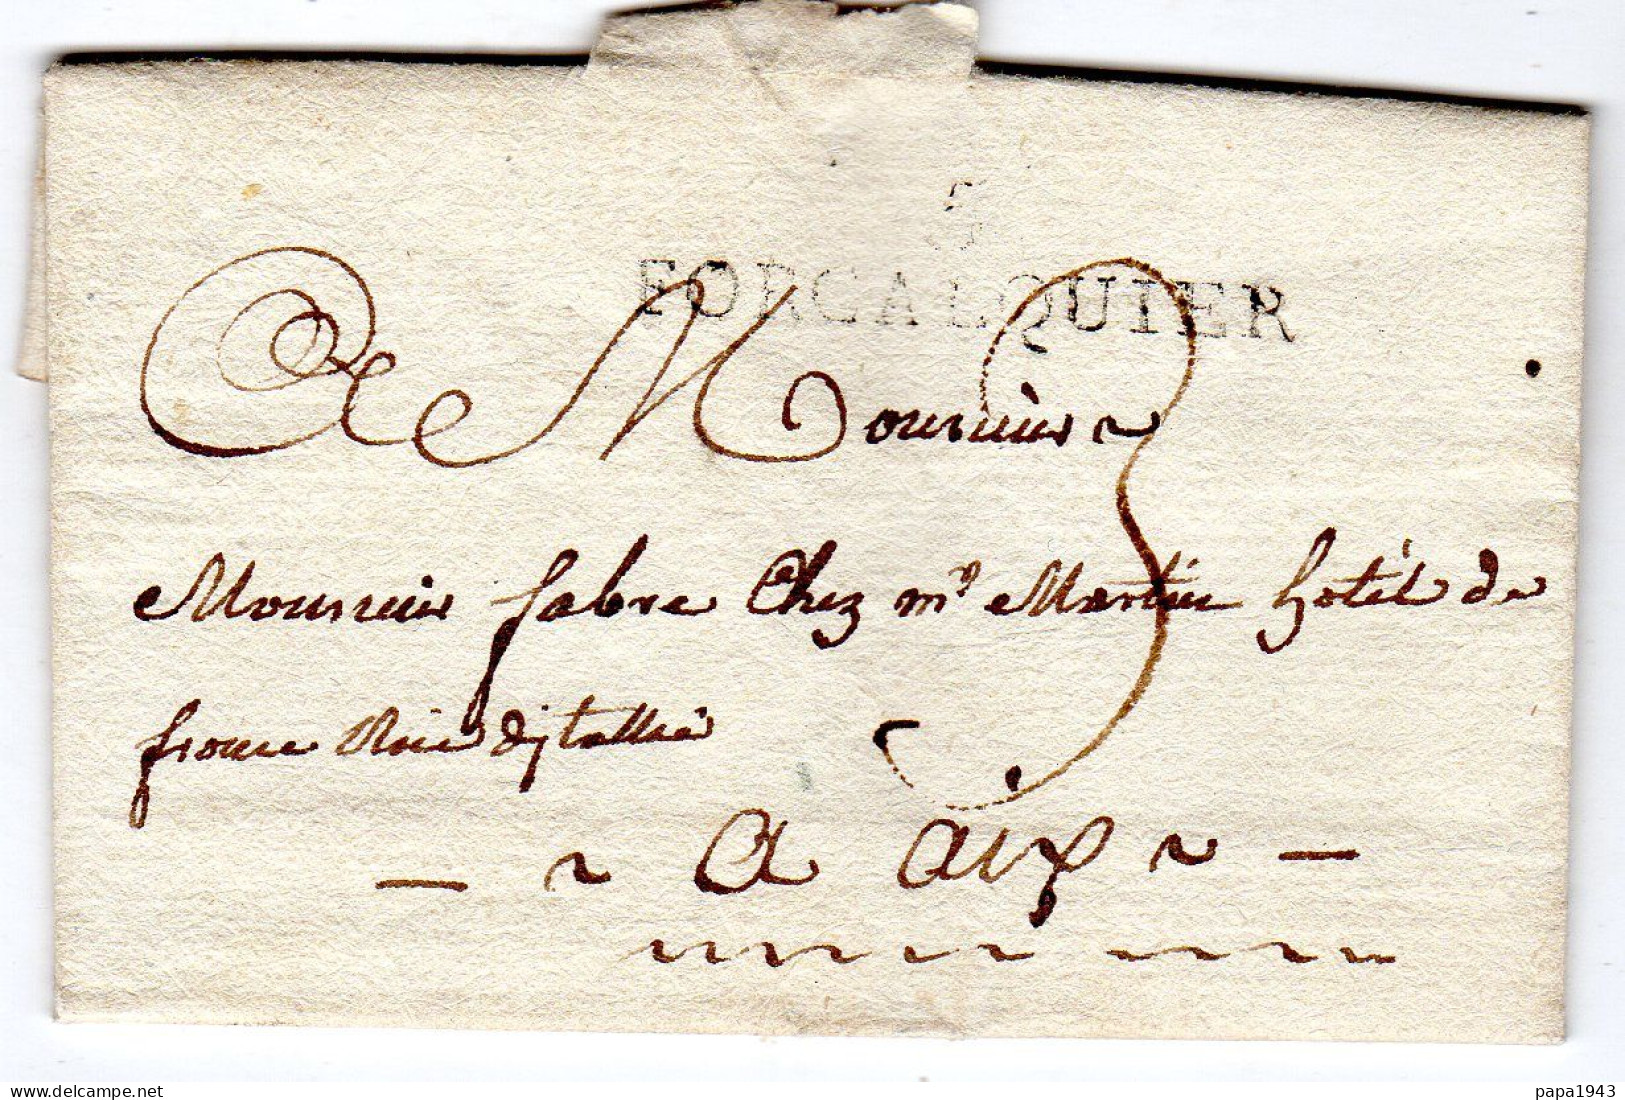 5
FORCALQUIER
A Monsieur
3
Monsieur fabre Chez mr Martin hotel de
france Rue d'jtallie
A aix
papa1943